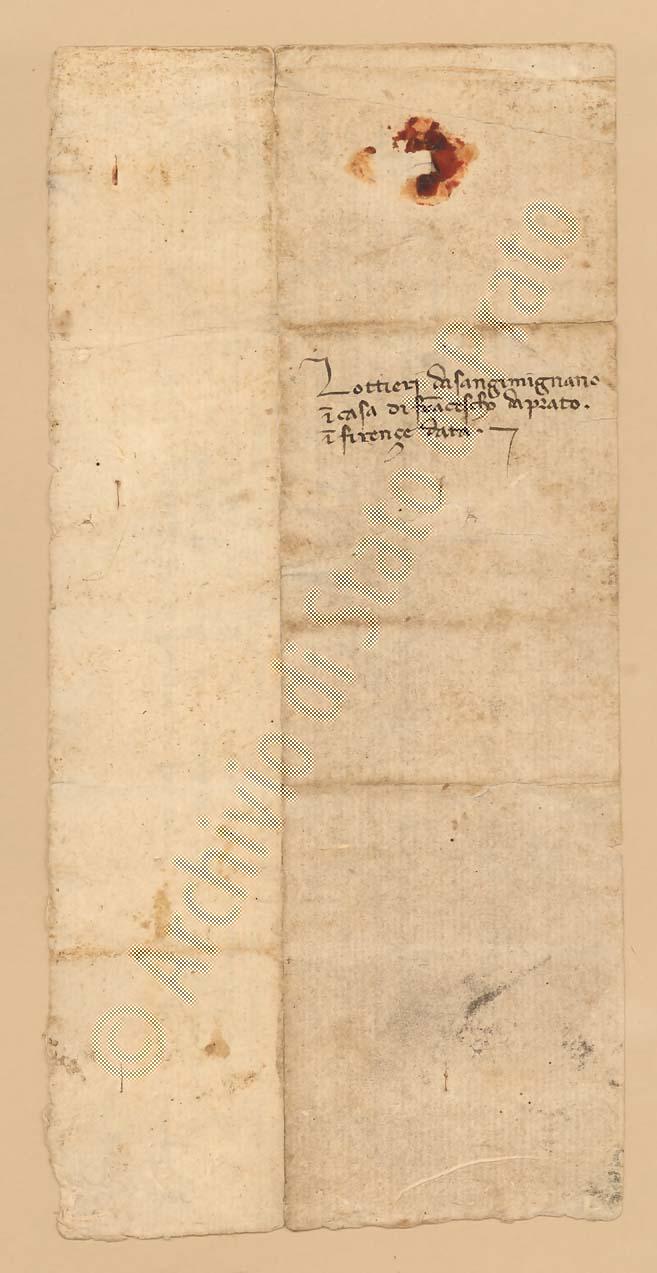 Lottieri dasangimignano
ī casa di francescho daprato.
ī firençe data.
© Archivio di Stato di Prato